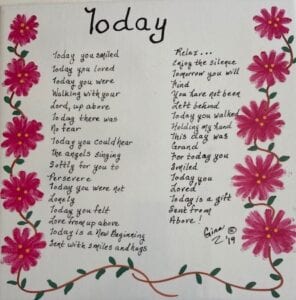 Today
Today you smiled
Today you loved
Today you were
Walking with your
Lord, up above
Today there was
No fear
Today you could hear
The angels singing
Softly for you to
Persevere
Today you were not
Lonely
Today you felt
Love from up above
Today is a New Beginning
Sent with smiles and hugs
Relax...
Enjoy the silence
Tomorrow you will
Find
You have not been
Left behind
Today you walked
Holding my hand
This day was
Grand
For today you
Smiled
Today you
Loved
Today is a gift
Sent from
Above!
Gina ©
'19